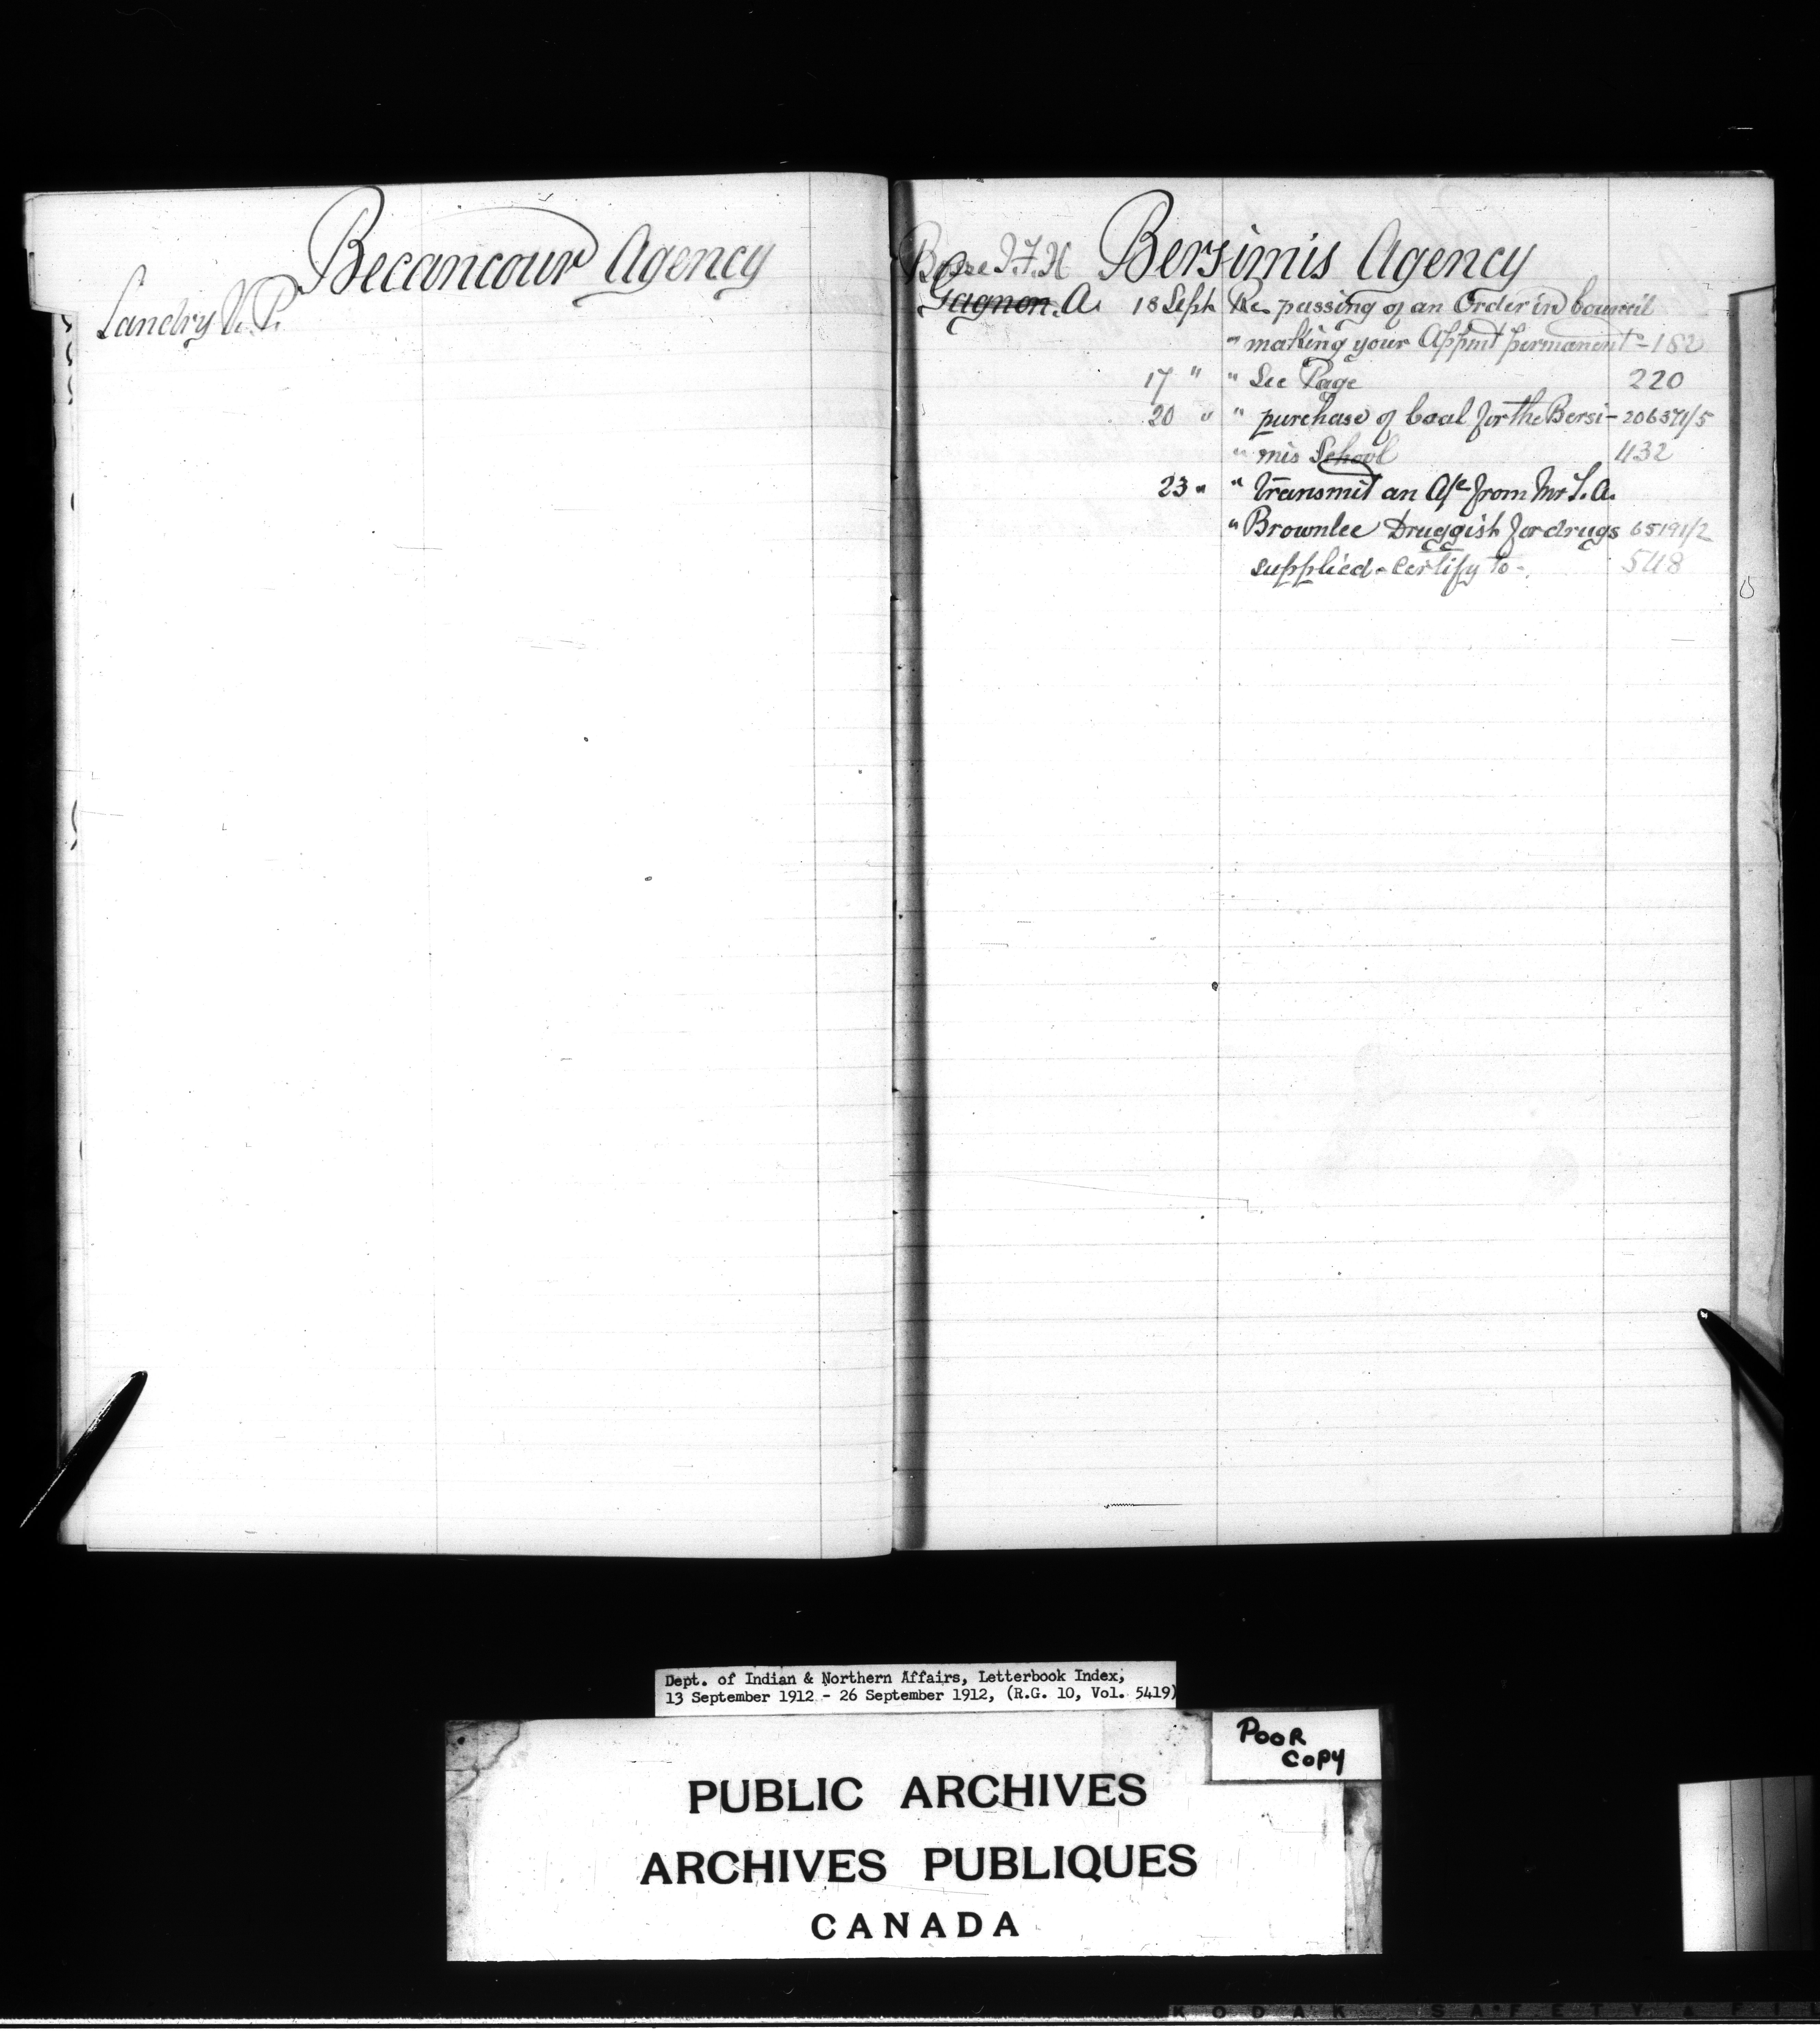 Becancour Agency
Landry V. P.
Bosse J. F. X Bersimis Agency
Gagnon. A. 18 Sept Re passing of an Order in Council
" making your Appmt permanent - 182
17 " " See Page 220
20 " " purchase of Coal for the Bersi- 206371/5
" mis School 432
23 " " Transmit an A/c from Mr S. A.
" Brownlee Druggist for drugs 65191/2
supplied - Certify to - 548
Dept. of Indian & Northern Affairs, Letterbook Index,
13 September 1912 - 26 September 1912, (R.G. 10, Vol. 5419)
POOR
COPY
PUBLIC ARCHIVES
ARCHIVES PUBLIQUES
CANADA
KODAK SAFETY FIL